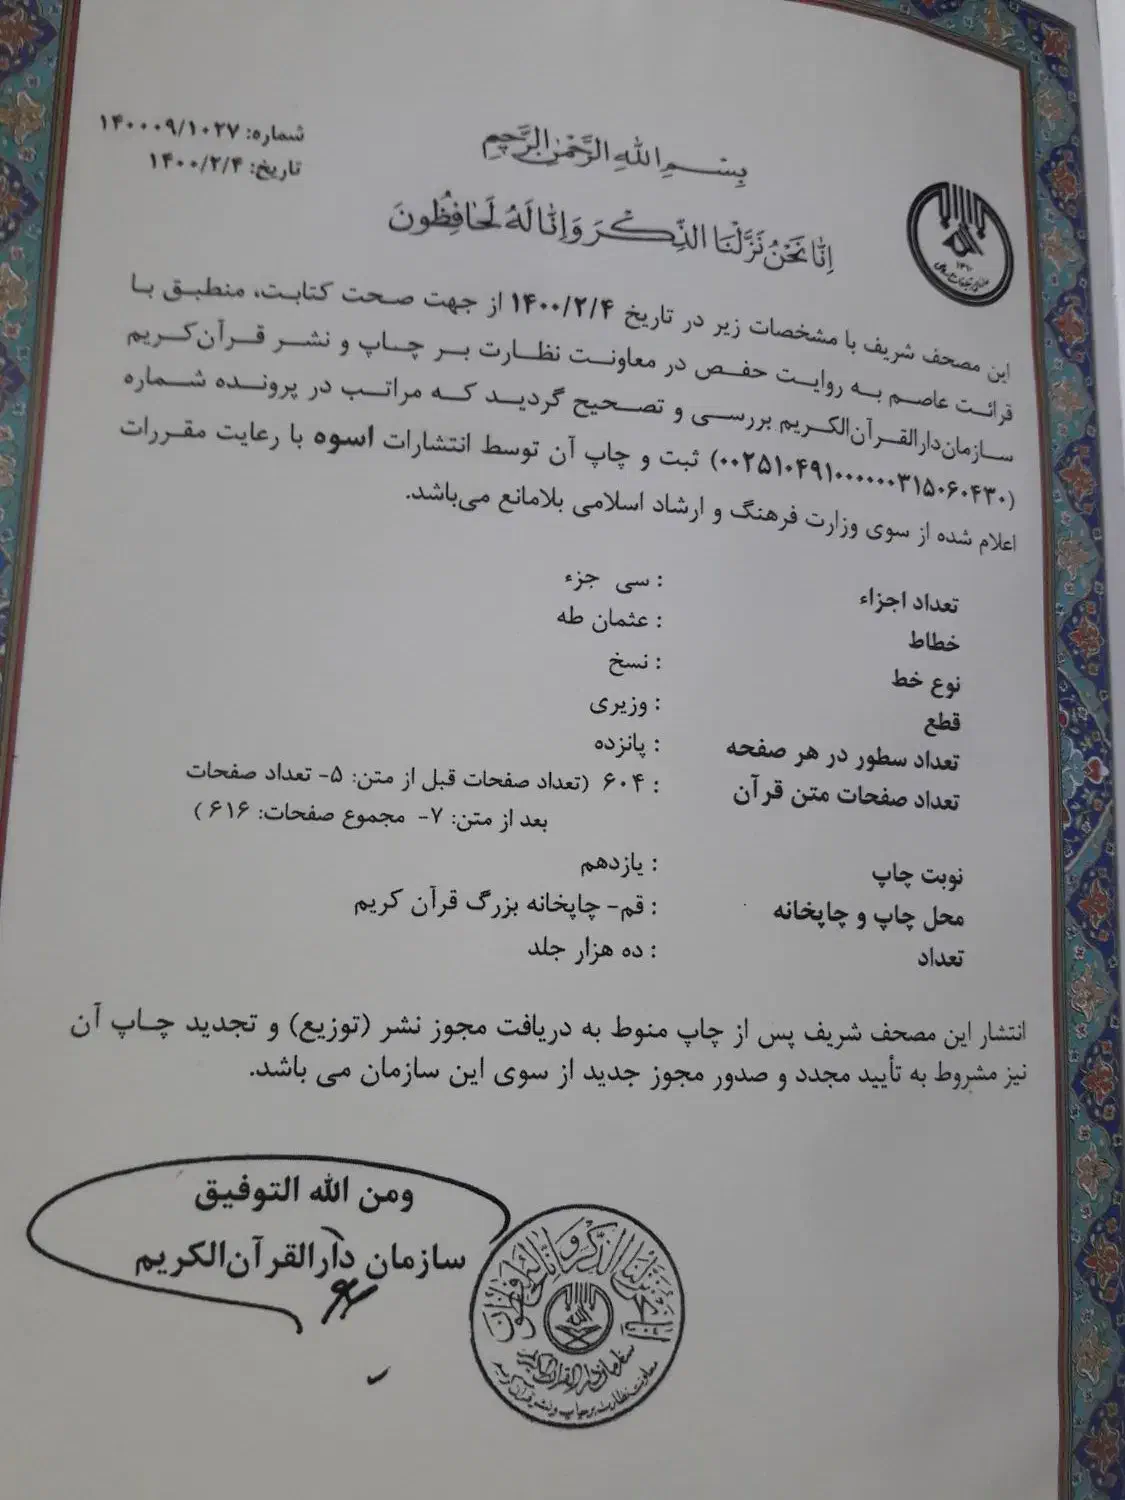 شماره: ۱۴۰۰۰۹/۱۰۲۷
تاریخ: ۱۴۰۰/۲/۴
بِسْمِ اللهِ الرَّحْمٰنِ الرَّحِیمِ
اِنّا نَحْنُ نَزَّلْنَا الذِّکْرَ وَاِنّا لَهُ لَحافِظُونَ
این مصحف شریف با مشخصات زیر در تاریخ ۱۴۰۰/۲/۴ از جهت صحت کتابت، منطبق با
قرائت عاصم به روایت حفص در معاونت نظارت بر چاپ و نشر قرآن‌کریم
سازمان‌دارالقرآن‌الکریم بررسی و تصحیح گردید که مراتب در پرونده شماره
(۰۰۲۵۱۰۴۹۱۰۰۰۰۰۰۳۱۵۰۶۰۴۳۰) ثبت و چاپ آن توسط انتشارات اسوه با رعایت مقررات
اعلام شده از سوی وزارت فرهنگ و ارشاد اسلامی بلامانع می‌باشد.
تعداد اجزاء : سی جزء
خطاط : عثمان طه
نوع خط : نسخ
قطع : وزیری
تعداد سطور در هر صفحه : پانزده
تعداد صفحات متن قرآن : ۶۰۴ (تعداد صفحات قبل از متن: ۵- تعداد صفحات
بعد از متن: ۷- مجموع صفحات: ۶۱۶ )
نوبت چاپ : یازدهم
محل چاپ و چاپخانه : قم- چاپخانه بزرگ قرآن کریم
تعداد : ده هزار جلد
انتشار این مصحف شریف پس از چاپ منوط به دریافت مجوز نشر (توزیع) و تجدید چاپ آن
نیز مشروط به تأیید مجدد و صدور مجوز جدید از سوی این سازمان می باشد.
ومن الله التوفیق
سازمان دارالقرآن‌الکریم
انا نحن نزلنا الذکر و انا له لحافظون
سازمان دارالقرآن الکریم
معاونت نظارت بر چاپ و نشر قرآن کریم